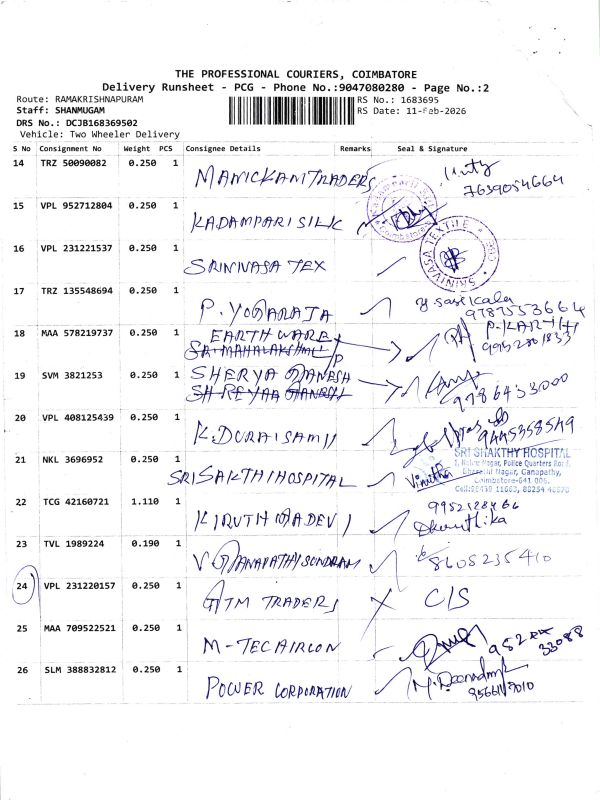 THE PROFESSIONAL COURIERS, COIMBATORE
Delivery Runsheet - PCG - Phone No.:9047080280 - Page No.:2
Route: RAMAKRISHNAPURAM
RS No.: 1683695
Staff: SHANMUGAM
RS Date: 11-Feb-2026
DRS No.: DCJB168369502
Vehicle: Two Wheeler Delivery
S No Consignment No Weight PCS Consignee Details Remarks Seal & Signature
14 TRZ 50090082 0.250 1 MANICKAM TRADERS 7639054664
15 VPL 952712804 0.250 1 KADAMPARI SILK
16 VPL 231221537 0.250 1 SRINIVASA TEX SRINIVASA TEXTILE
17 TRZ 135548694 0.250 1 P. YOGARAJA y. sasikala
9787553664
18 MAA 578219737 0.250 1 EARTHWARE P. KARTHI
SRI MAHALAKSHMI 9952801833
19 SVM 3821253 0.250 1 SHERYA GANESH 9786433000
SHREYAA GANESH
20 VPL 408125439 0.250 1 K. DURAISAMJI 9445358549
21 NKL 3696952 0.250 1 SRI SAKTHI HOSPITAL Vinitha
SRI SHAKTHY HOSPITAL
Nagar, Police Quarters Road,
Bharathi Nagar, Ganapathy,
Coimbatore-641 006.
22 TCG 42160721 1.110 1 KIRUTHIGADEVI
23 TVL 1989224 0.190 1 V GANAPATHISUNDRAM 8605235410
24 VPL 231220157 0.250 1 GTM TRADERS X C/S
25 MAA 709522521 0.250 1 M-TECAIRCON
33088
26 SLM 388832812 0.250 1 POWER CORPORATION